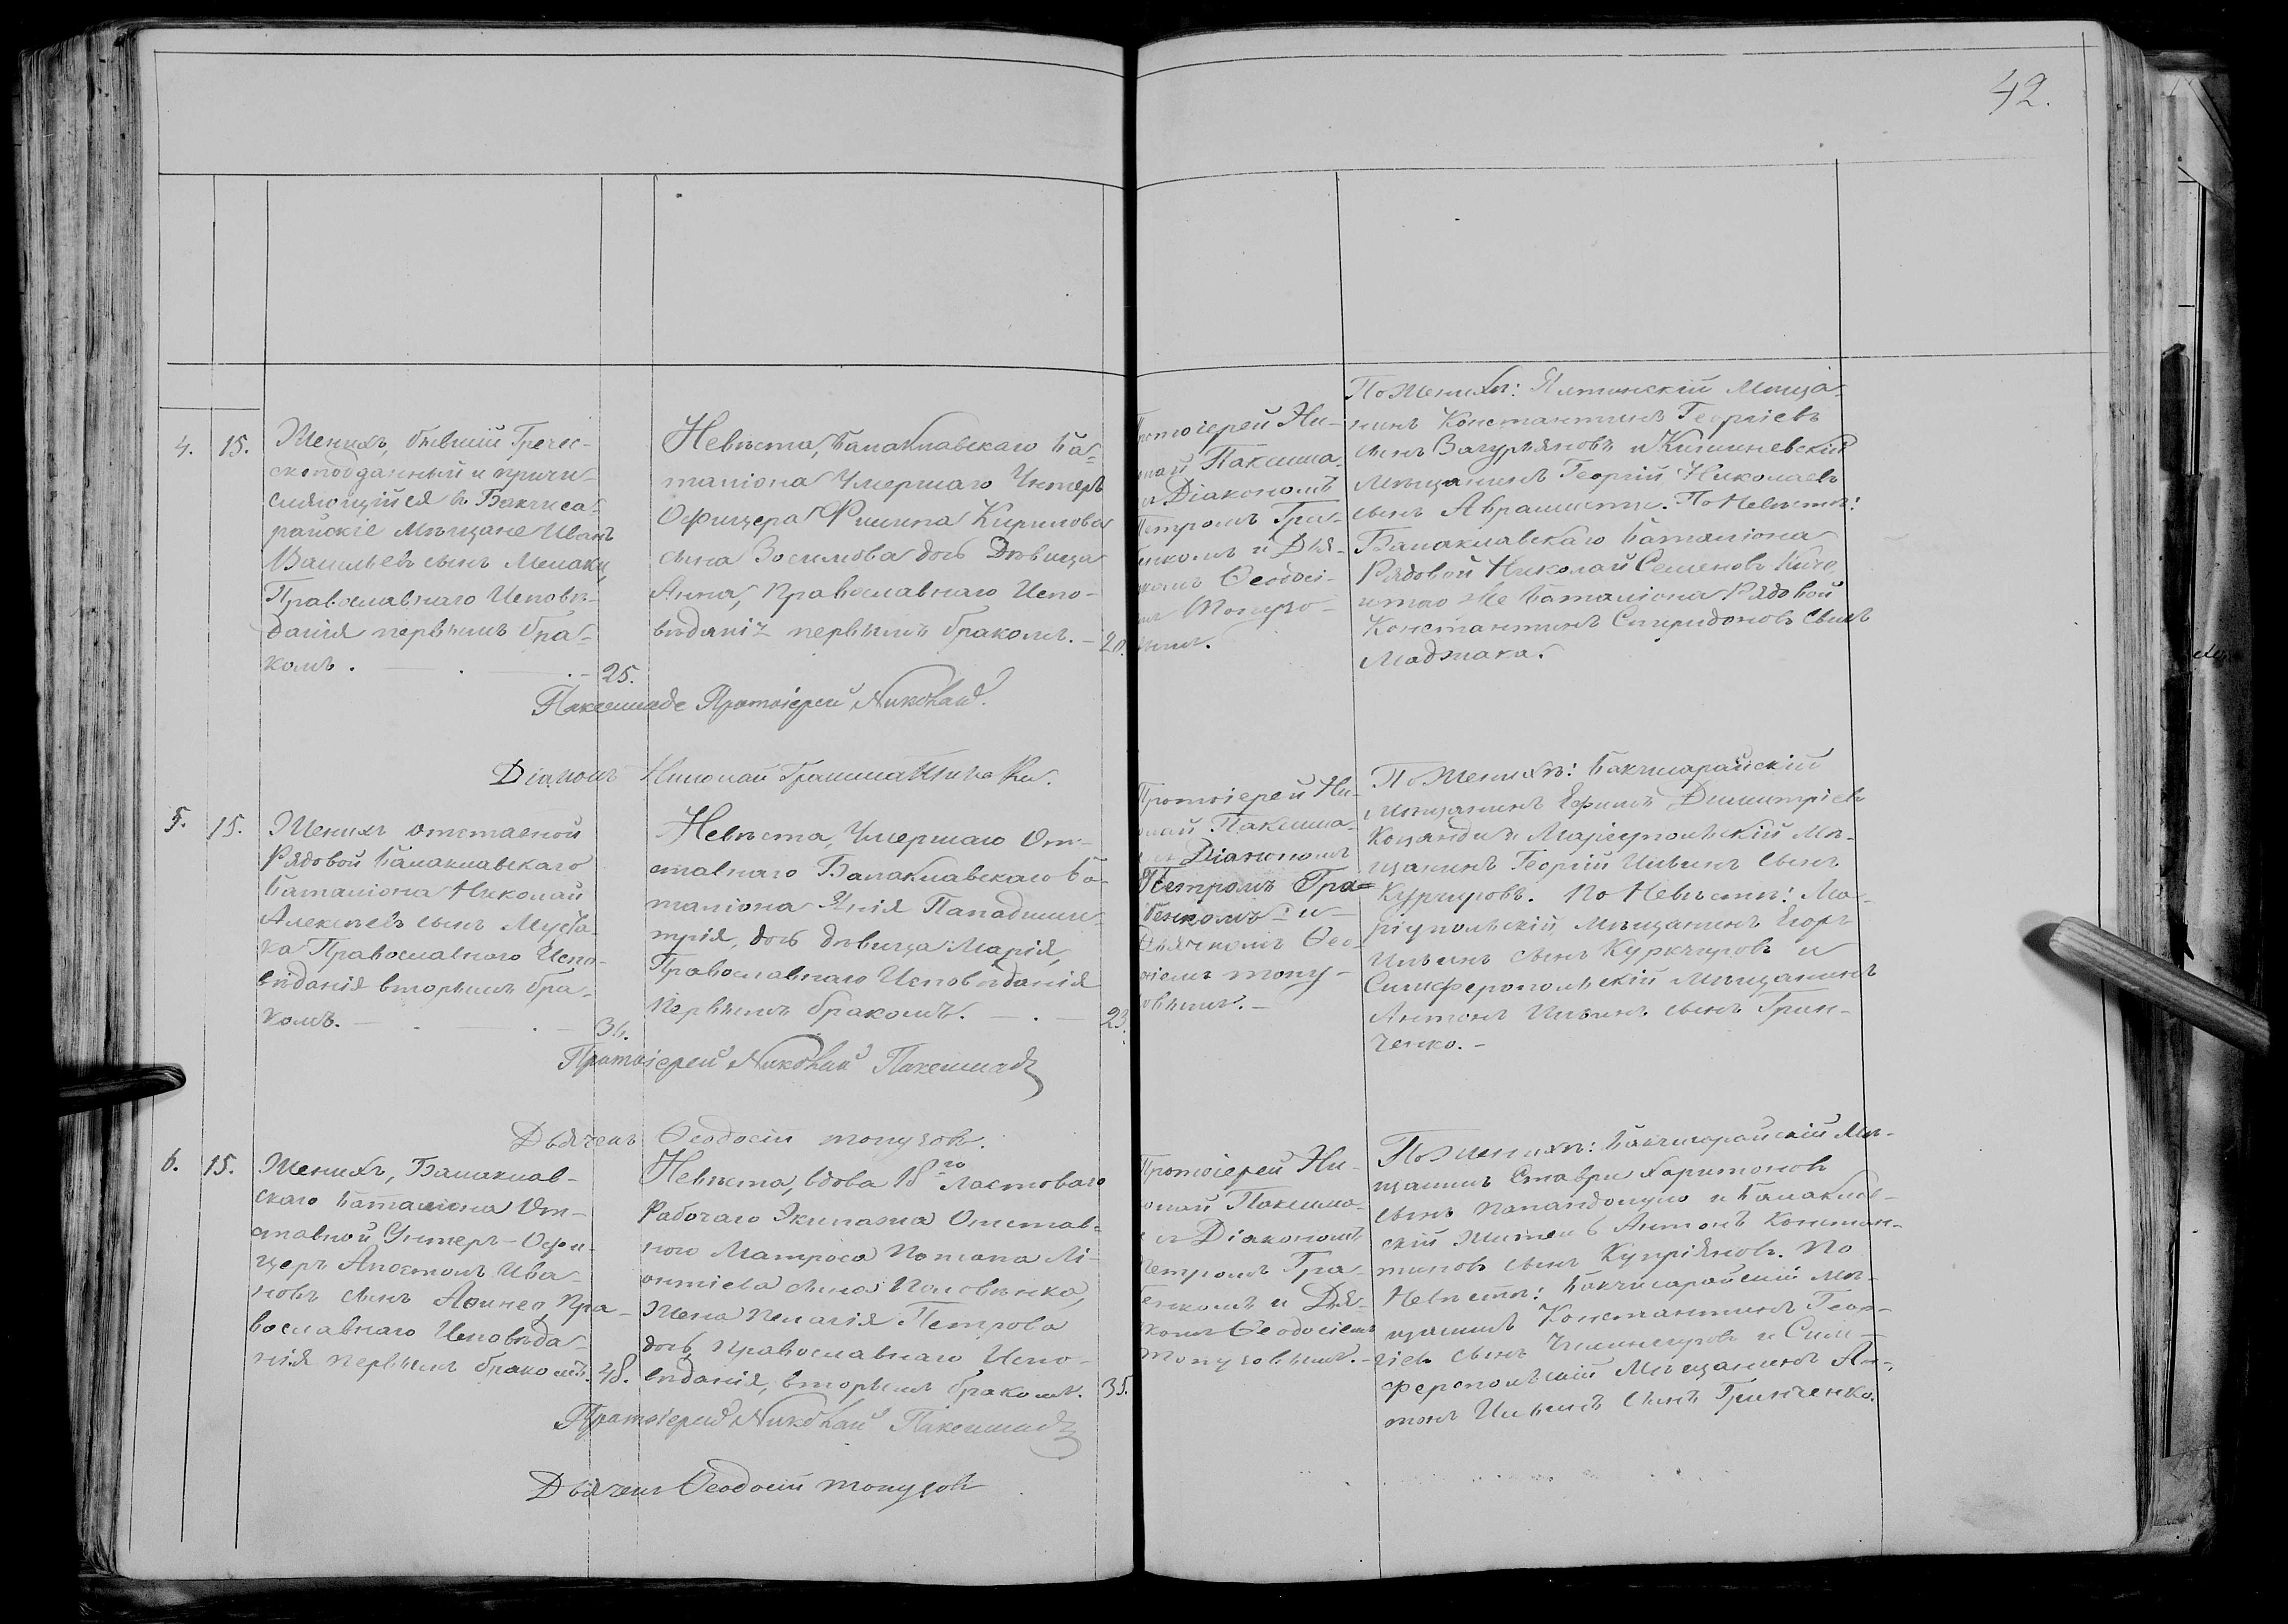 42.
4.
15.
Женихъ, бывшій Гречес-
скоподданный и причи-
сляющійся въ Бакчиса-
райскіе Мѣщане Иванъ
Васильевъ сынъ Мелаки,
Православнаго Исповѣ-
данія первымъ бра-
комъ. 25.
Невѣста, Балаклавскаго Ба-
таліона Умершаго Унтеръ
Офицера Филипа Кирилова
сына Зосимова дочь Дѣвица
Анна, Православнаго Испо-
вѣданія первымъ бракомъ. — 20.
Протоіерей Ни-
колай Паксима-
съ Діакономъ
Петромъ Гра-
бенкомъ и Дья-
комъ Ѳеодосі-
емъ Топузо-
вымъ.
По Женихѣ: Ялтинскій Мѣща-
нинъ Константинъ Георгіевъ
сынъ Загурьяновъ и Кишиневскій
Мѣщанинъ Георгій Николаевъ
сынъ Аврамисти. По Невѣстѣ:
Балаклавскаго Баталіона
Рядовой Николай Семеновъ
и того же Баталіона Рядовой
Константинъ Спиридоновъ Сынъ
Маджака.
Паксимаде Протоіерей Николай.
Діаконъ Николай
5.
15.
Женихъ отставной
Рядовой Балаклавскаго
Баталіона Николай
Алексѣевъ сынъ Муста-
ка Православнаго Испо-
вѣданія вторымъ бра-
комъ. — 36.
Невѣста, Умершаго От-
ставнаго Балаклавскаго Ба-
таліона Янія Пападими-
трія, дочь дѣвица Марія,
Православнаго Исповѣданія
первымъ бракомъ. — 23.
Протоіерей Ни-
колай Паксима-
съ Діакономъ
Петромъ Гра-
бенкомъ и
Дьячкомъ Ѳео-
досіемъ Топу-
зовымъ. —
По Женихѣ: Бакчисарайскій
Мѣщанинъ Ефимъ Димитріевъ
Маріупольскій Мѣ-
щанинъ Георгій Ильинъ Сынъ
Курчуровъ. По Невѣстѣ: Ма-
ріупольскій Мѣщанинъ Егоръ
Ильинъ сынъ Куркчуровъ и
Симферопольскій Мѣщанинъ
Антонъ Ильинъ сынъ Грин-
ченко. —
Протоіерей Николай Паксимаде
Дьячекъ Ѳеодосій Топузовъ.
6.
15.
Женихъ, Балаклав-
скаго Баталіона От-
ставной Унтеръ-Офи-
церъ Апостолъ Ива-
новъ сынъ Аѳинео, Пра-
вославнаго Исповѣда-
нія первымъ бракомъ. 48.
Невѣста, вдова 18го Ластоваго
Рабочаго Экипажа Отстав-
ного Матроса Потапа Лі-
онтіева сына Половынка,
Жена Пелагія Петрова
дочь, Православнаго Испо-
вѣданія, вторымъ бракомъ. 35.
Протоіерей Ни-
колай Паксима-
съ Діакономъ
Петромъ Гра-
бенкомъ и Дья-
комъ Ѳеодосіемъ
Топузовымъ. —
По Женихѣ: Бакчисарайскій Мѣ-
щанинъ Ставри Харитоновъ
сынъ Папандопуло и Балаклав-
скій Житель Антонъ Констан-
тиновъ сынъ Купріяновъ. По
Невѣстѣ: Бакчисарайскій Мѣ-
щанинъ Константинъ Геор-
гіевъ сынъ Чилингировъ и Сим-
феропольскій Мѣщанинъ Ан-
тонъ Ильинъ Сынъ Гринченко.
Протоіерей Николай Паксимаде
Дьячекъ Ѳеодосій Топузовъ